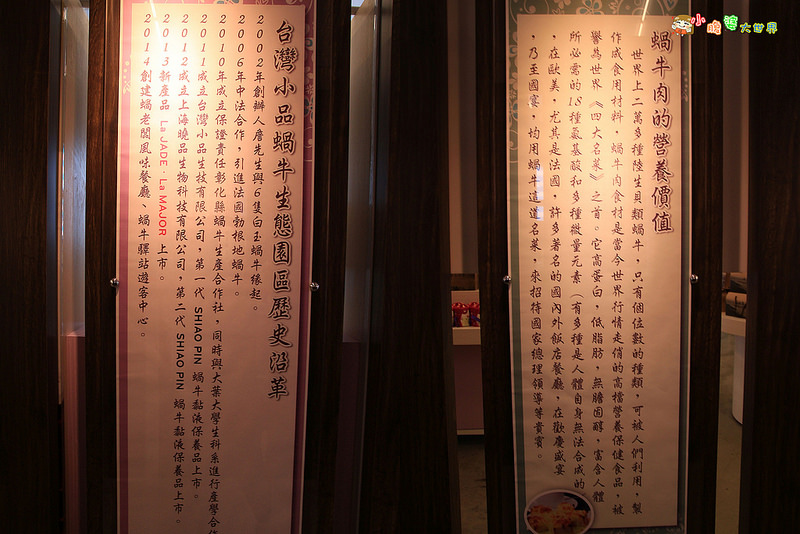 蝸牛肉的營養價值
世界上二萬多種陸生貝類蝸牛，只有個位數的種類，可被人們利用，製
作成食用材料，蝸牛肉食材是當今世界行情走俏的高檔營養保健食品，被
譽為世界《四大名菜》之首。它高蛋白，低脂肪，無膽固醇，富含人體
所必需的18種氨基酸和多種微量元素（有多種是人體自身無法合成的
，在歐美，尤其是法國，許多著名的國內外飯店餐廳，在歡慶盛宴
，乃至國宴，均用蝸牛這道名菜，來招待國家總理領導等貴賓。
台灣小品蝸牛生態園區歷史沿革
2002年創辦人詹先生與6隻白玉蝸牛緣起。
2006年中法合作，引進法國勃根地蝸牛。
2010年成立保證責任彰化縣蝸牛生產合作社，同時與大葉大學生科系進行產學合作
2011成立台灣小品生技有限公司，第一代 SHIAO PIN 蝸牛黏液保養品上市。
2012成立上海曉品生物科技有限公司，第二代 SHIAO PIN 蝸牛黏液保養品上市。
2013新產品 La JADE．La MAJOR 上市。
2014創建蝸老闆風味餐廳、蝸牛驛站遊客中心。
小膽婆大世界